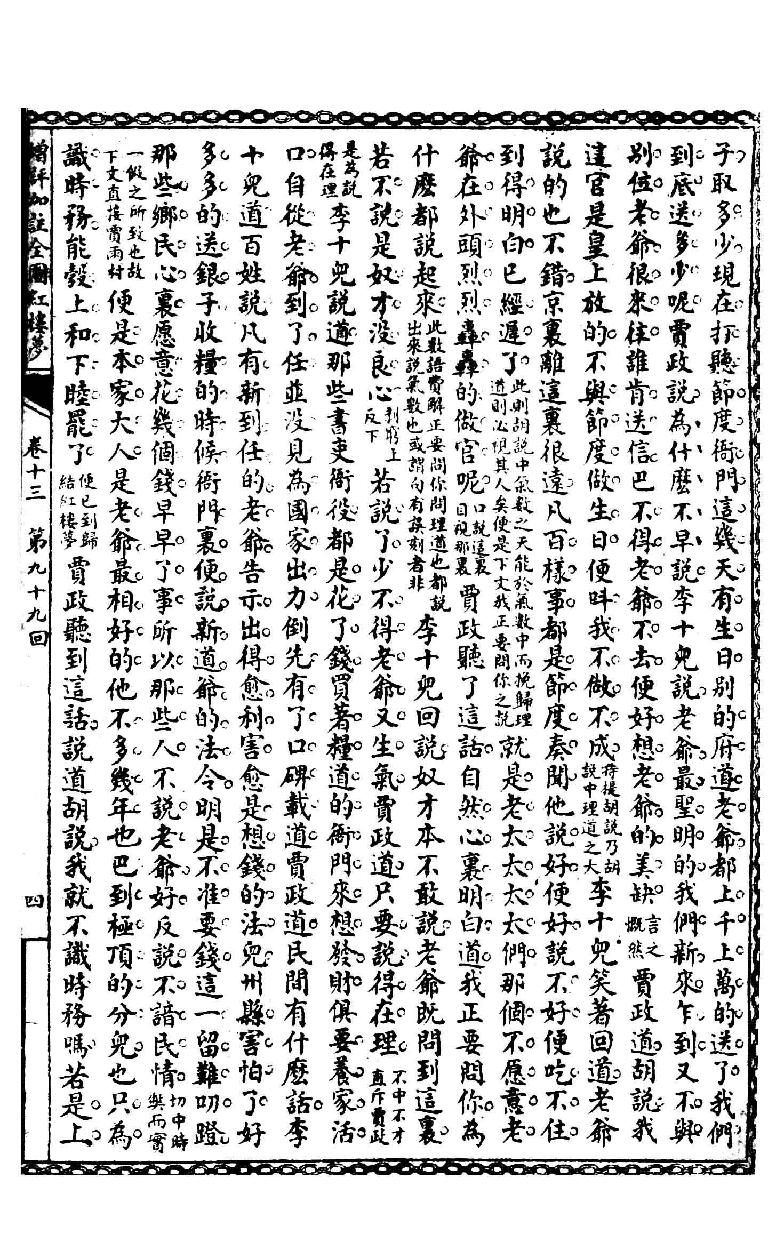 子取多少現在打聽節度衙門這幾天有生日別的府道老爺都上千上萬的送了我們
到底送多少呢賈政說為什麼不早說李十兒說老爺最聖明的我們新來乍到又不與
別位老爺很來往誰肯送信巴不得老爺不去便好想老爺的美缺言之慨然賈政道胡說我
這官是皇上放的不與節度做生日便呌我不做不成特提胡說乃胡說中理道之大李十兒笑著回道老爺
說的也不錯京裏離這裏很遠凡百樣事都是節度奏聞他說好便好說不好便吃不住
到得明白已經遲了此則胡說中氣數之天能於氣數中而挽歸理道則必視其人矣便是下文我正要問你之說就是老太太太太們那個不愿意老
爺在外頭烈烈轟轟的做官呢口說這裏目視那裏賈政聽了這話自然心裏明白道我正要問你為
什麼都說起來此數語費解正要問你問理道也都說出來說氣數也或謂向有誤刻者非李十兒回說奴才本不敢說老爺既問到這裏
若不說是奴才没良心判窮上反下若說了少不得老爺又生氣賈政道只要說得在理不中不才直斥賈政
是為說得在理李十兒說道那些書吏衙役都是花了錢買著糧道的衙門來想發財俱要養家活
口自從老爺到了任並没見為國家出力倒先有了口碑載道賈政道民間有什麼話李
十兒道百姓說凡有新到任的老爺告示出得愈利害愈是想錢的法兒州縣害怕了好
多多的送銀子收糧的時候衙門裏便說新道爺的法令明是不准要錢這一留難叨蹬
那些鄉民心裏愿意花幾個錢早早了事所以那些人不說老爺好反說不諳民情切中時弊而實
一假之所致也故下文直接賈雨村便是本家大人是老爺最相好的他不多幾年也巴到極頂的分兒也只為
識時務能彀上和下睦罷了便已到歸結紅樓夢賈政聽到這話說道胡說我就不識時務嗎若是上
增評加註全圖紅樓夢 卷十三 第九十九回 四